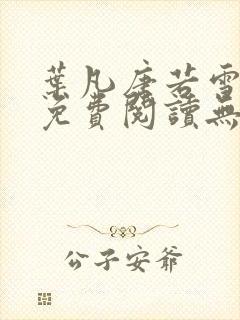 葉凡唐若雪
免費閱讀無
公子安爺